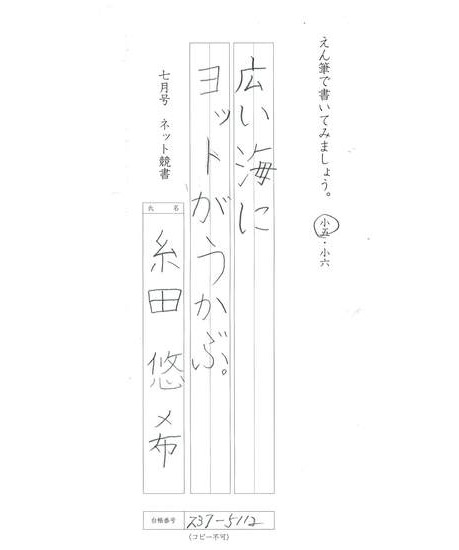 えん筆で書いてみましょう。 小五・小六
広い海に
ヨットがうかぶ。
七月号 ネット競書
氏 名
糸田 悠希
台帳番号 237-5112
(コピー不可)